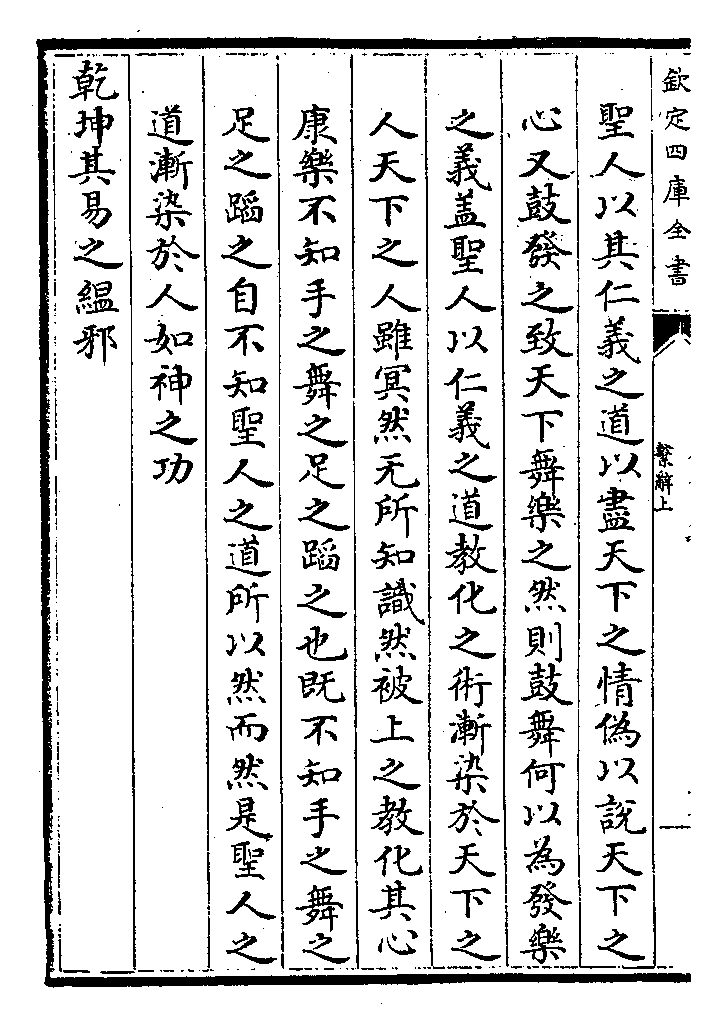 欽定四庫全書
繫辭上
聖人以其仁義之道以盡天下之情偽以說天下之
心又鼓發之致天下舞樂之然則鼓舞何以為發樂
之義蓋聖人以仁義之道教化之術漸染於天下之
人天下之人雖冥然无所知識然被上之教化其心
康樂不知手之舞之足之蹈之也既不知手之舞之
足之蹈之自不知聖人之道所以然而然是聖人之
道漸染於人如神之功
乾坤其易之緼邪